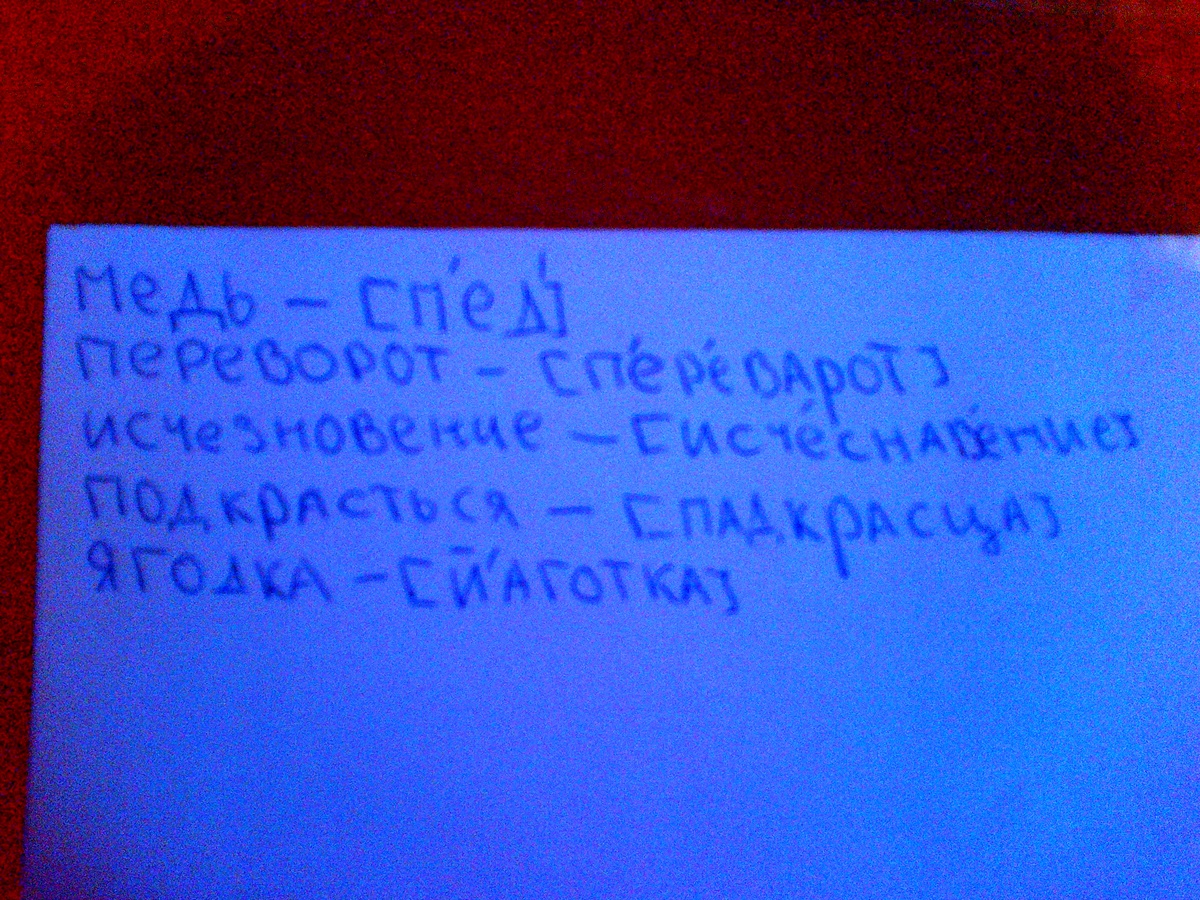 медь – [п'ед']
переворот – [п'ер'еварот]
исчезновение – [исч'еснав'ение]
подкрасться – [падкрасца]
ягодка – [й'аготка]